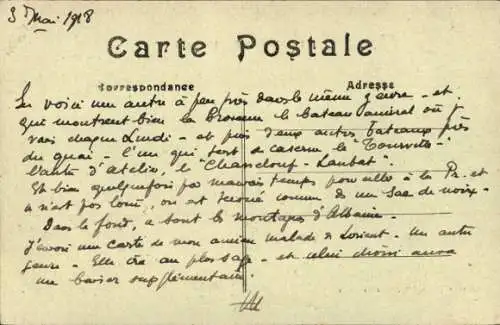 3 Mai 1918
Carte Postale
Correspondance
Adresse
En voici un autre à peu près dans le même genre - et
qui montrent bien la le bateau amiral où j'
vais chaque Lundi - et puis deux autres bateaux près
du quai, l'un qui sert de caserne le "Tourville"
l'autre d'atelier, le "Chanclouf-Laubat".
Et bien quelquefois par mauvais temps pour aller à la Pr. et
n'est pas loin, on est secoué comme un sac de noix.
Dans le fond, ce sont les montagnes d'Albanie.
J'envoie une carte de mon ancien malade de Lorient. Un autre
genre. Elle au plus sage - et celui aura
un baiser supplémentaire.